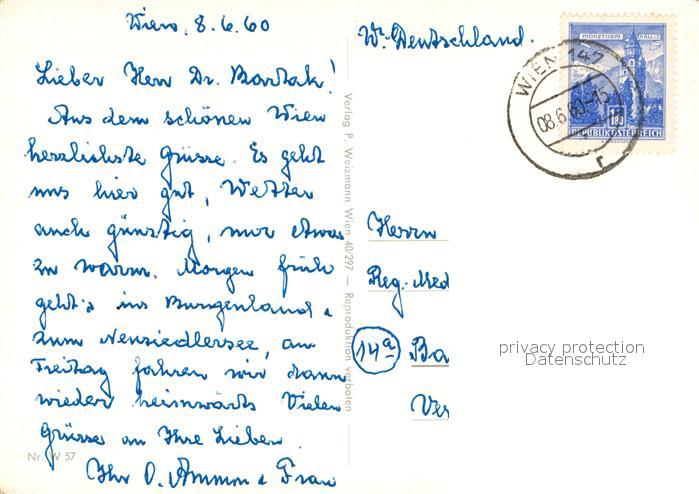 Wien, 8.6.60
Lieber Herr Dr. Bartak!
Aus dem schönen Wien
herzlichste Grüsse. Es geht
uns hier gut, Wetter
auch günstig, nur etwas
zu warm. Morgen früh
geht's ins Burgenland,
zum Neusiedlersee, am
Freitag fahren wir dann
wieder heimwärts Vielen
Grüsse an Ihre Lieben
Ihr O. Ammon & Frau
Nr. W 57
Verlag P. Weizmann Wien 40/297 — Reproduktion verboten
W. Deutschland.
MÜNZTURM HALL i. T.
1.80
REPUBLIK ÖSTERREICH
WIEN 147
08.6.60-15
r
Herrn
Reg.-Med
14a Ba
Ver
privacy protection
Datenschutz